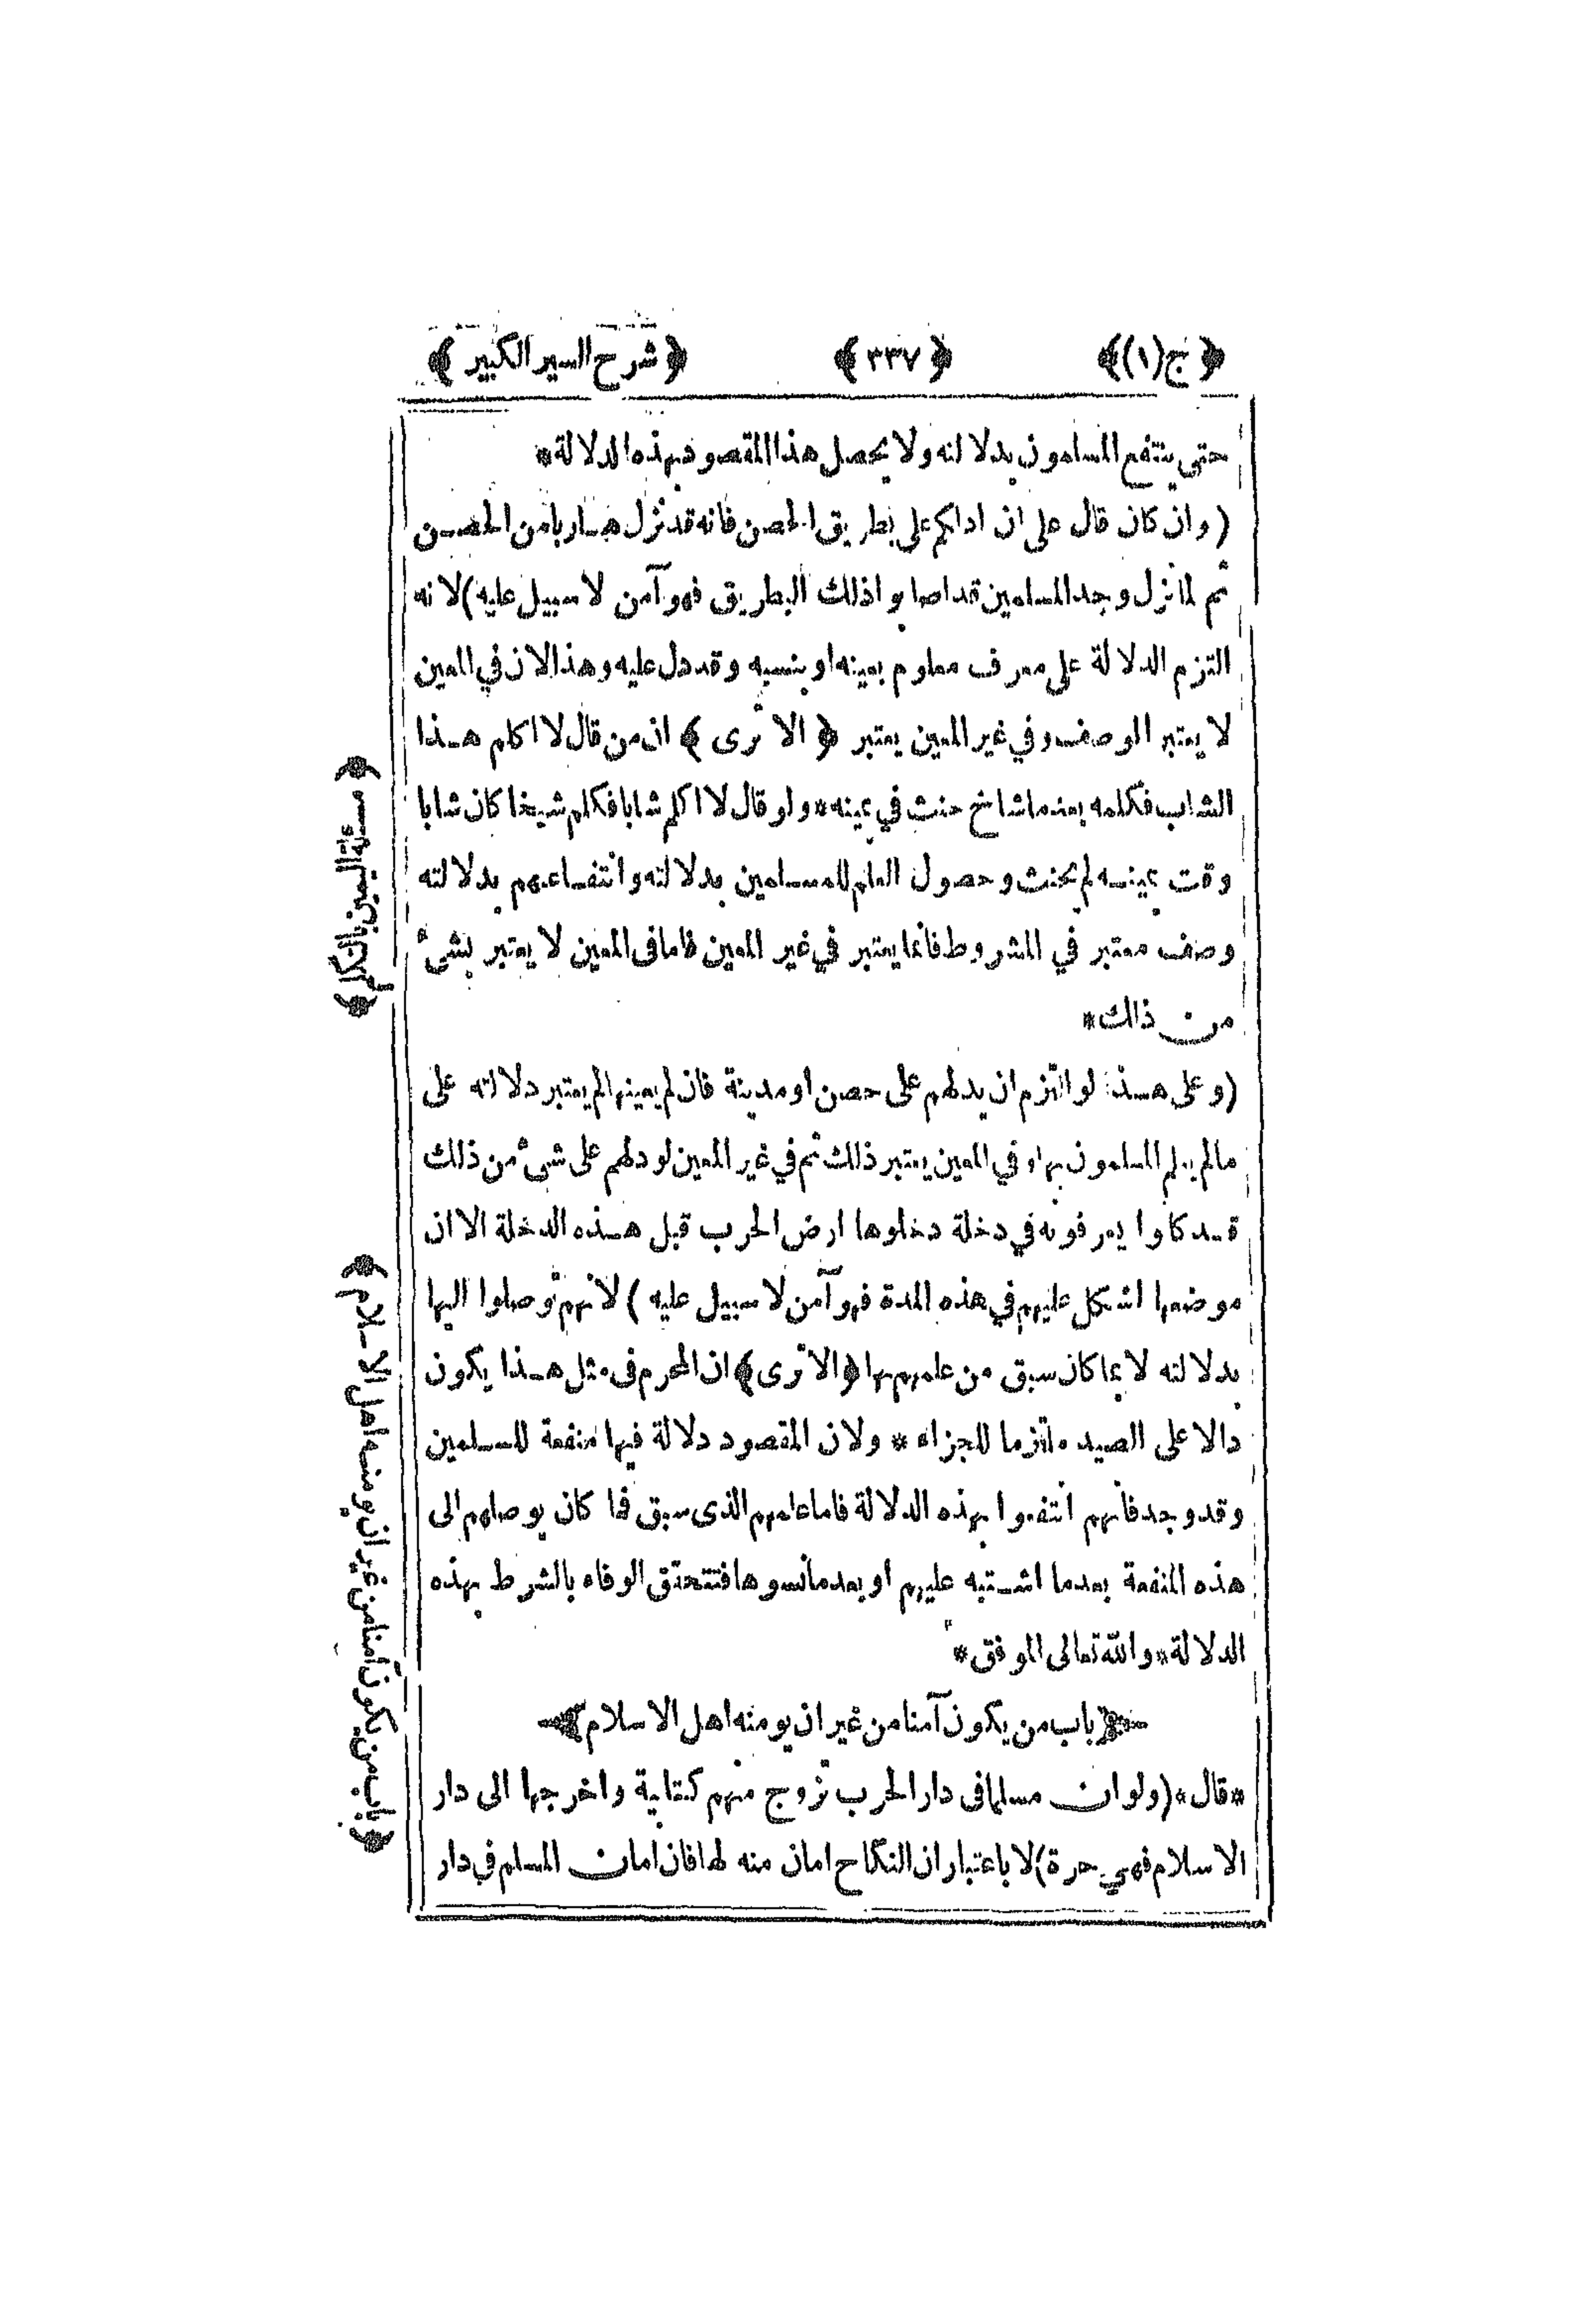 ﴿ ج (١) ﴾ ﴿ ٣٣٧ ﴾ ﴿ شرح السير الكبير ﴾
حتى ينتفع المسلمون بدلالته ولا يحصل هذا المقصود بهذه الدلالة*
(وان كان قال على ان ادلكم على بطريق الحصن فانه قد نزل هاربا من الحصن
ثم لما نزل وجد المسلمين قد اصابوا ذلك البطريق فهو آمن لا سبيل عليه) لانه
التزم الدلالة على معرف معلوم بعينه او بنسبه وقد دل عليه وهذا لان في المعين
لا يعتبر الوصف وفي غير المعين يعتبر ﴿ الا ترى ﴾ ان من قال لا اكلم هذا
الشاب فكلمه بعد ما شاخ حنث في يمينه* ولو قال لا اكلم شابا فكلم شيخا كان شابا
وقت يمينه لم يحنث وحصول العلم للمسلمين بدلالته وانتفاعهم بدلالته
وصف معتبر في المشروط فانما يعتبر في غير المعين فاما فى المعين لا يعتبر بشئ
من ذلك*
(وعلى هذا لو التزم ان يدلهم على حصن او مدينة فان لم يعينها لم يعتبر دلالته على
مالم يعلم المسلمون بها وفي المعين يعتبر ذلك ثم في غير المعين لو دلهم على شئ من ذلك
قد كانوا يعرفونه في دخلة دخلوها ارض الحرب قبل هذه الدخلة الا ان
موضعها اشكل عليهم في هذه المدة فهو آمن لا سبيل عليه) لانهم توصلوا اليها
بدلالته لا بما كان سبق من علمهم بها ﴿الا ترى﴾ ان المحرم فى مثل هذا يكون
دالا على الصيد ملتزما للجزاء* ولان المقصود دلالة فيها منفعة للمسلمين
وقد وجد فانهم انتفعوا بهذه الدلالة فاما علمهم الذى سبق فما كان يوصلهم الى
هذه المنفعة بعدما اشتبه عليهم او بعدما نسوها فتتحقق الوفاء بالشرط بهذه
الدلالة* والله تعالى الموفق*
﴿باب من يكون آمنا من غير ان يومنه اهل الاسلام﴾
*قال* (ولو ان مسلما فى دار الحرب تزوج منهم كتابية واخرجها الى دار
الاسلام فهي حرة) لا باعتبار ان النكاح امان منه لها فان امان المسلم في دار
﴿مسئلة اليمين بالتكلم﴾
﴿باب من يكون آمنا من غير ان يومنه اهل الاسلام﴾